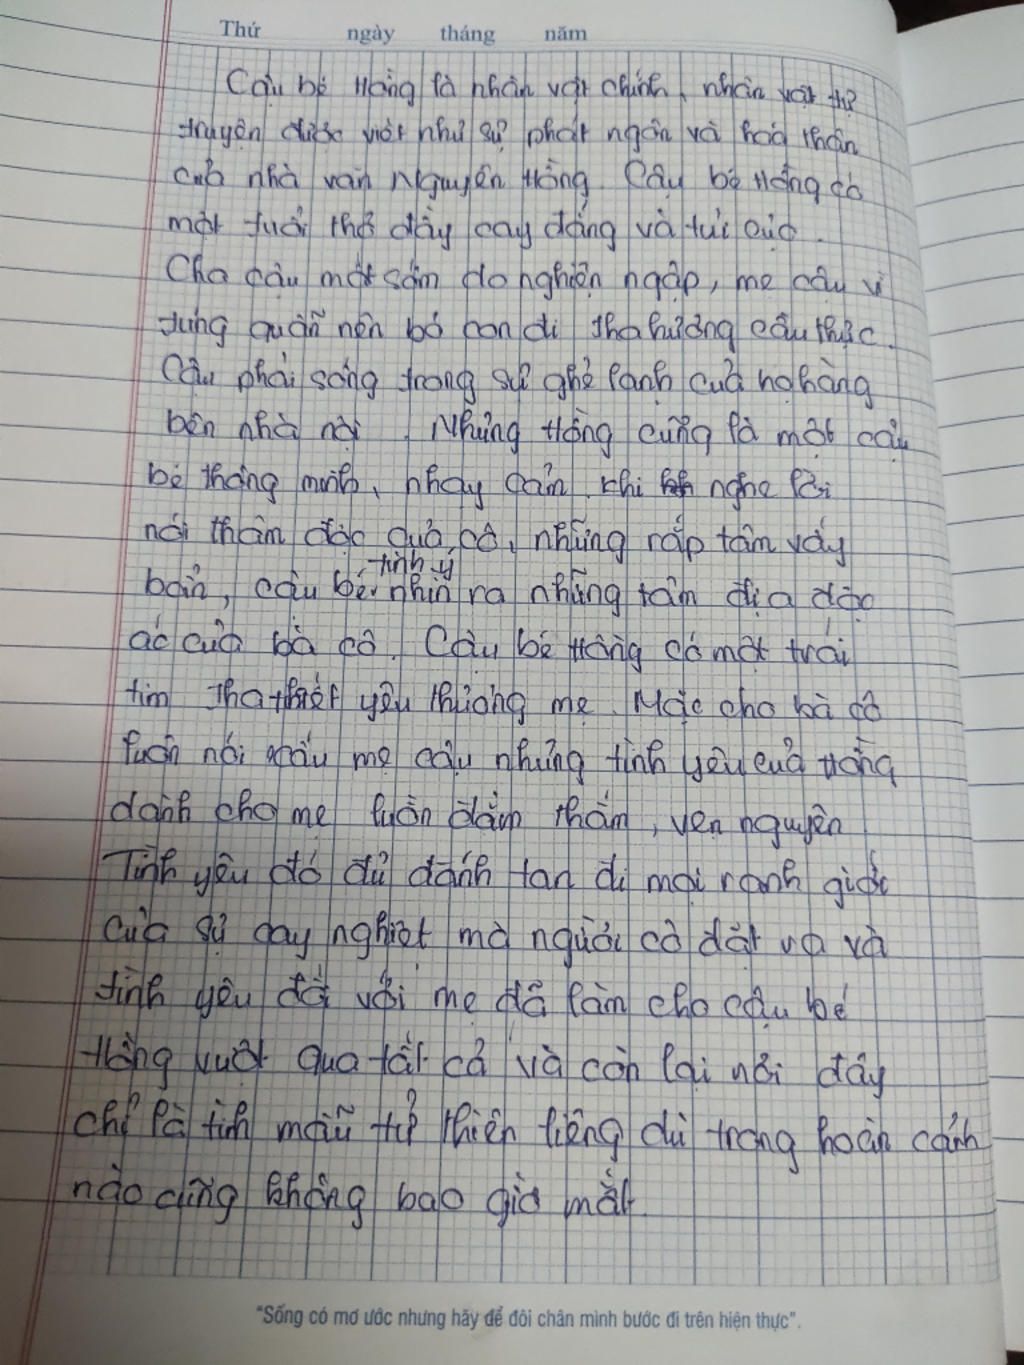 Thứ ngày tháng năm
Cậu bé Hồng là nhân vật chính, nhân vật tự
truyện được viết như sự phát ngôn và hoá thân
của nhà văn Nguyên Hồng. Cậu bé Hồng có
một tuổi thơ đầy cay đắng và tủi cực.
Cha cậu mất sớm do nghiện ngập, mẹ cậu vì
túng quẫn nên bỏ con đi tha hương cầu thực.
Cậu phải sống trong sự ghẻ lạnh của họ hàng
bên nhà nội. Nhưng Hồng cũng là một cậu
bé thông minh, nhạy cảm. khi nghe lời
nói thâm độc của cô, những rắp tâm vấy
bẩn, cậu bé tinh ý nhìn ra những tâm địa độc
ác của bà cô. Cậu bé Hồng có một trái
tim tha thiết yêu thương mẹ. Mặc cho bà cô
luôn nói xấu mẹ cậu nhưng tình yêu của Hồng
dành cho mẹ luôn đằm thắm, vẹn nguyên
Tình yêu đó đủ đánh tan đi mọi ranh giới
của sự cay nghiệt mà người cô đặt ra và
tình yêu đối với mẹ đã làm cho cậu bé
Hồng vượt qua tất cả và còn lại nơi đây
chỉ là tình mẫu tử thiên liêng dù trong hoàn cảnh
nào cũng không bao giờ mất.
"Sống có mơ ước nhưng hãy để đôi chân mình bước đi trên hiện thực".